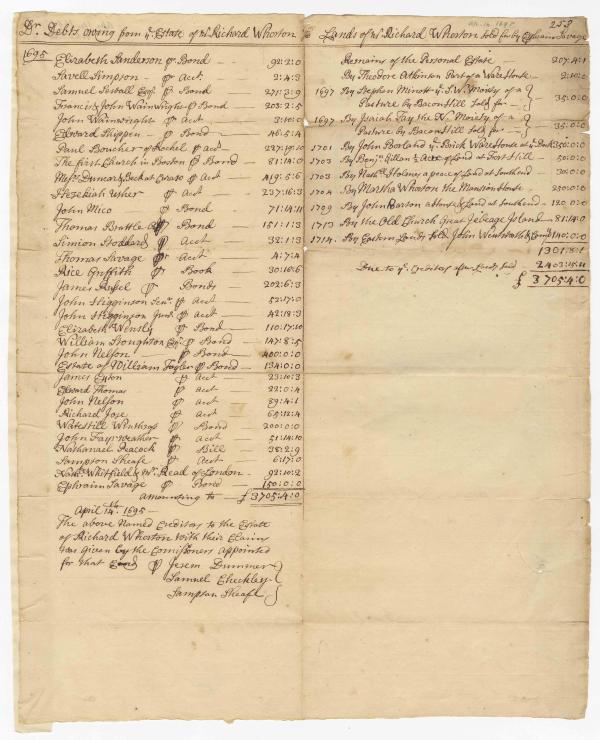 Ap. 14. 1695
258
Dr. Debts owing from ye Estate of Mr. Richard Wharton
1695
Elizabeth Sanderson P Bond 92:2:0
Savell Simpson P Act. 2:4:3
Samuel Sewall Esqr. P Bond 271:3:9
Francis & John Wainwright P Bond 203:2:5
John Wainwright P Act 3:10:0
Edward Shippen P Bond 46:5:4
Paul Boucher of Rochel P act 237:19:10
The first Church in Boston P Bond 81:14:0
Messrs. Duncan & Beck at Curaso P Act 419:5:6
Hezekiah Usher P Act 237:16:3
John Mico P Bond 71:14:11
Thomas Brattle P Bond 151:1:3
Simion Stoddard P Acct 32:1:3
Thomas Savage P Act 4:7:4
Rice Griffith P Book 30:18:6
James Russel P Bonds 202:6:3
John Higginson Senr. P Act 52:17:0
John Higginson Junr. P Act 42:18:3
Elizabeth Wensly P Bond 110:17:10
William Stoughton Esqr. P Bond 147:8:5
John Nelson P Bond 400:0:0
Estate of William Taylor P Bond 134:0:0
James Eyton P Act 23:10:3
Edward Thomas P act 22:0:4
John Nelson P act 89:4:1
Richard Jose P act 65:12:4
Waitstill Winthrop P Bond 200:0:0
John Fayrweather P act 51:14:10
Nathanael Peacock P Bill 38:2:9
Sampson Sheafe P Act 6:17:0
Nath. Whitfield & Mr. Read of London 92:10:2
Ephraim Savage P Bond 150:0:0
amounting to £ 3705:4:0
April 14th. 1695
The above Named Creditors to the Estate
of Richard Wharton with their Claims
was given by the Comissioners appointed
for that End P Jerem Dummer
Samuel Checkley
Sampson Sheafe
Lands of Mr. Richard Wharton sold by Ephraim Savage
Remains of the Personal Estate 207:4:1
By Theodore Atkinson Part of a Ware House 2:10:0
1697 By Stephen Minott ye S. W. Moiety of a
Pasture by Bacon Hill Sold for 35:0:0
1697 By Josiah Fay the N. Moiety of a
Pasture by Bacon Hill Sold for 35:0:0
1701 By John Borland ye Brick Ware House at ye Dock 350:0:0
1703 By Benjn. Gillam ½ Acre of Land at Fort Hill 50:0:0
1703 By Nath. Holmes a peece of Land at Southend 30:0:0
1704 By Martha Wharton the Mansion House 250:0:0
1709 By John Barton a House & Land at Southend 120:0:0
1713 By the Old Church Great Jebeage Island 81:14:0
1714 By Eastern Lands Sold John Wentworth 140:0:0
1301:8:1
Due to ye. Creditors after Lands Sold 2403:15:11
£ 3705:4:0